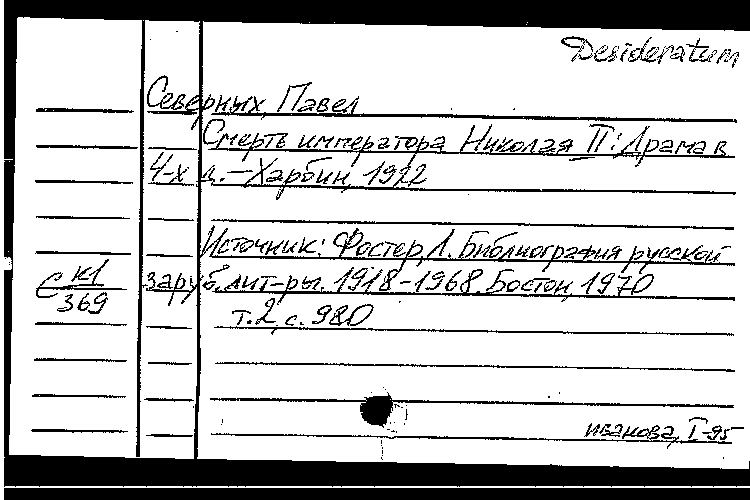 Desideratum
Северных, Павел
Смерть императора Николая II: Драма в
4-х д. — Харбин, 1922
Источник: Фостер, Л. Библиография русской
заруб. лит-ры. 1918-1968. Бостон, 1970
т. 2, с. 980
С к1/369
иванова, I-95